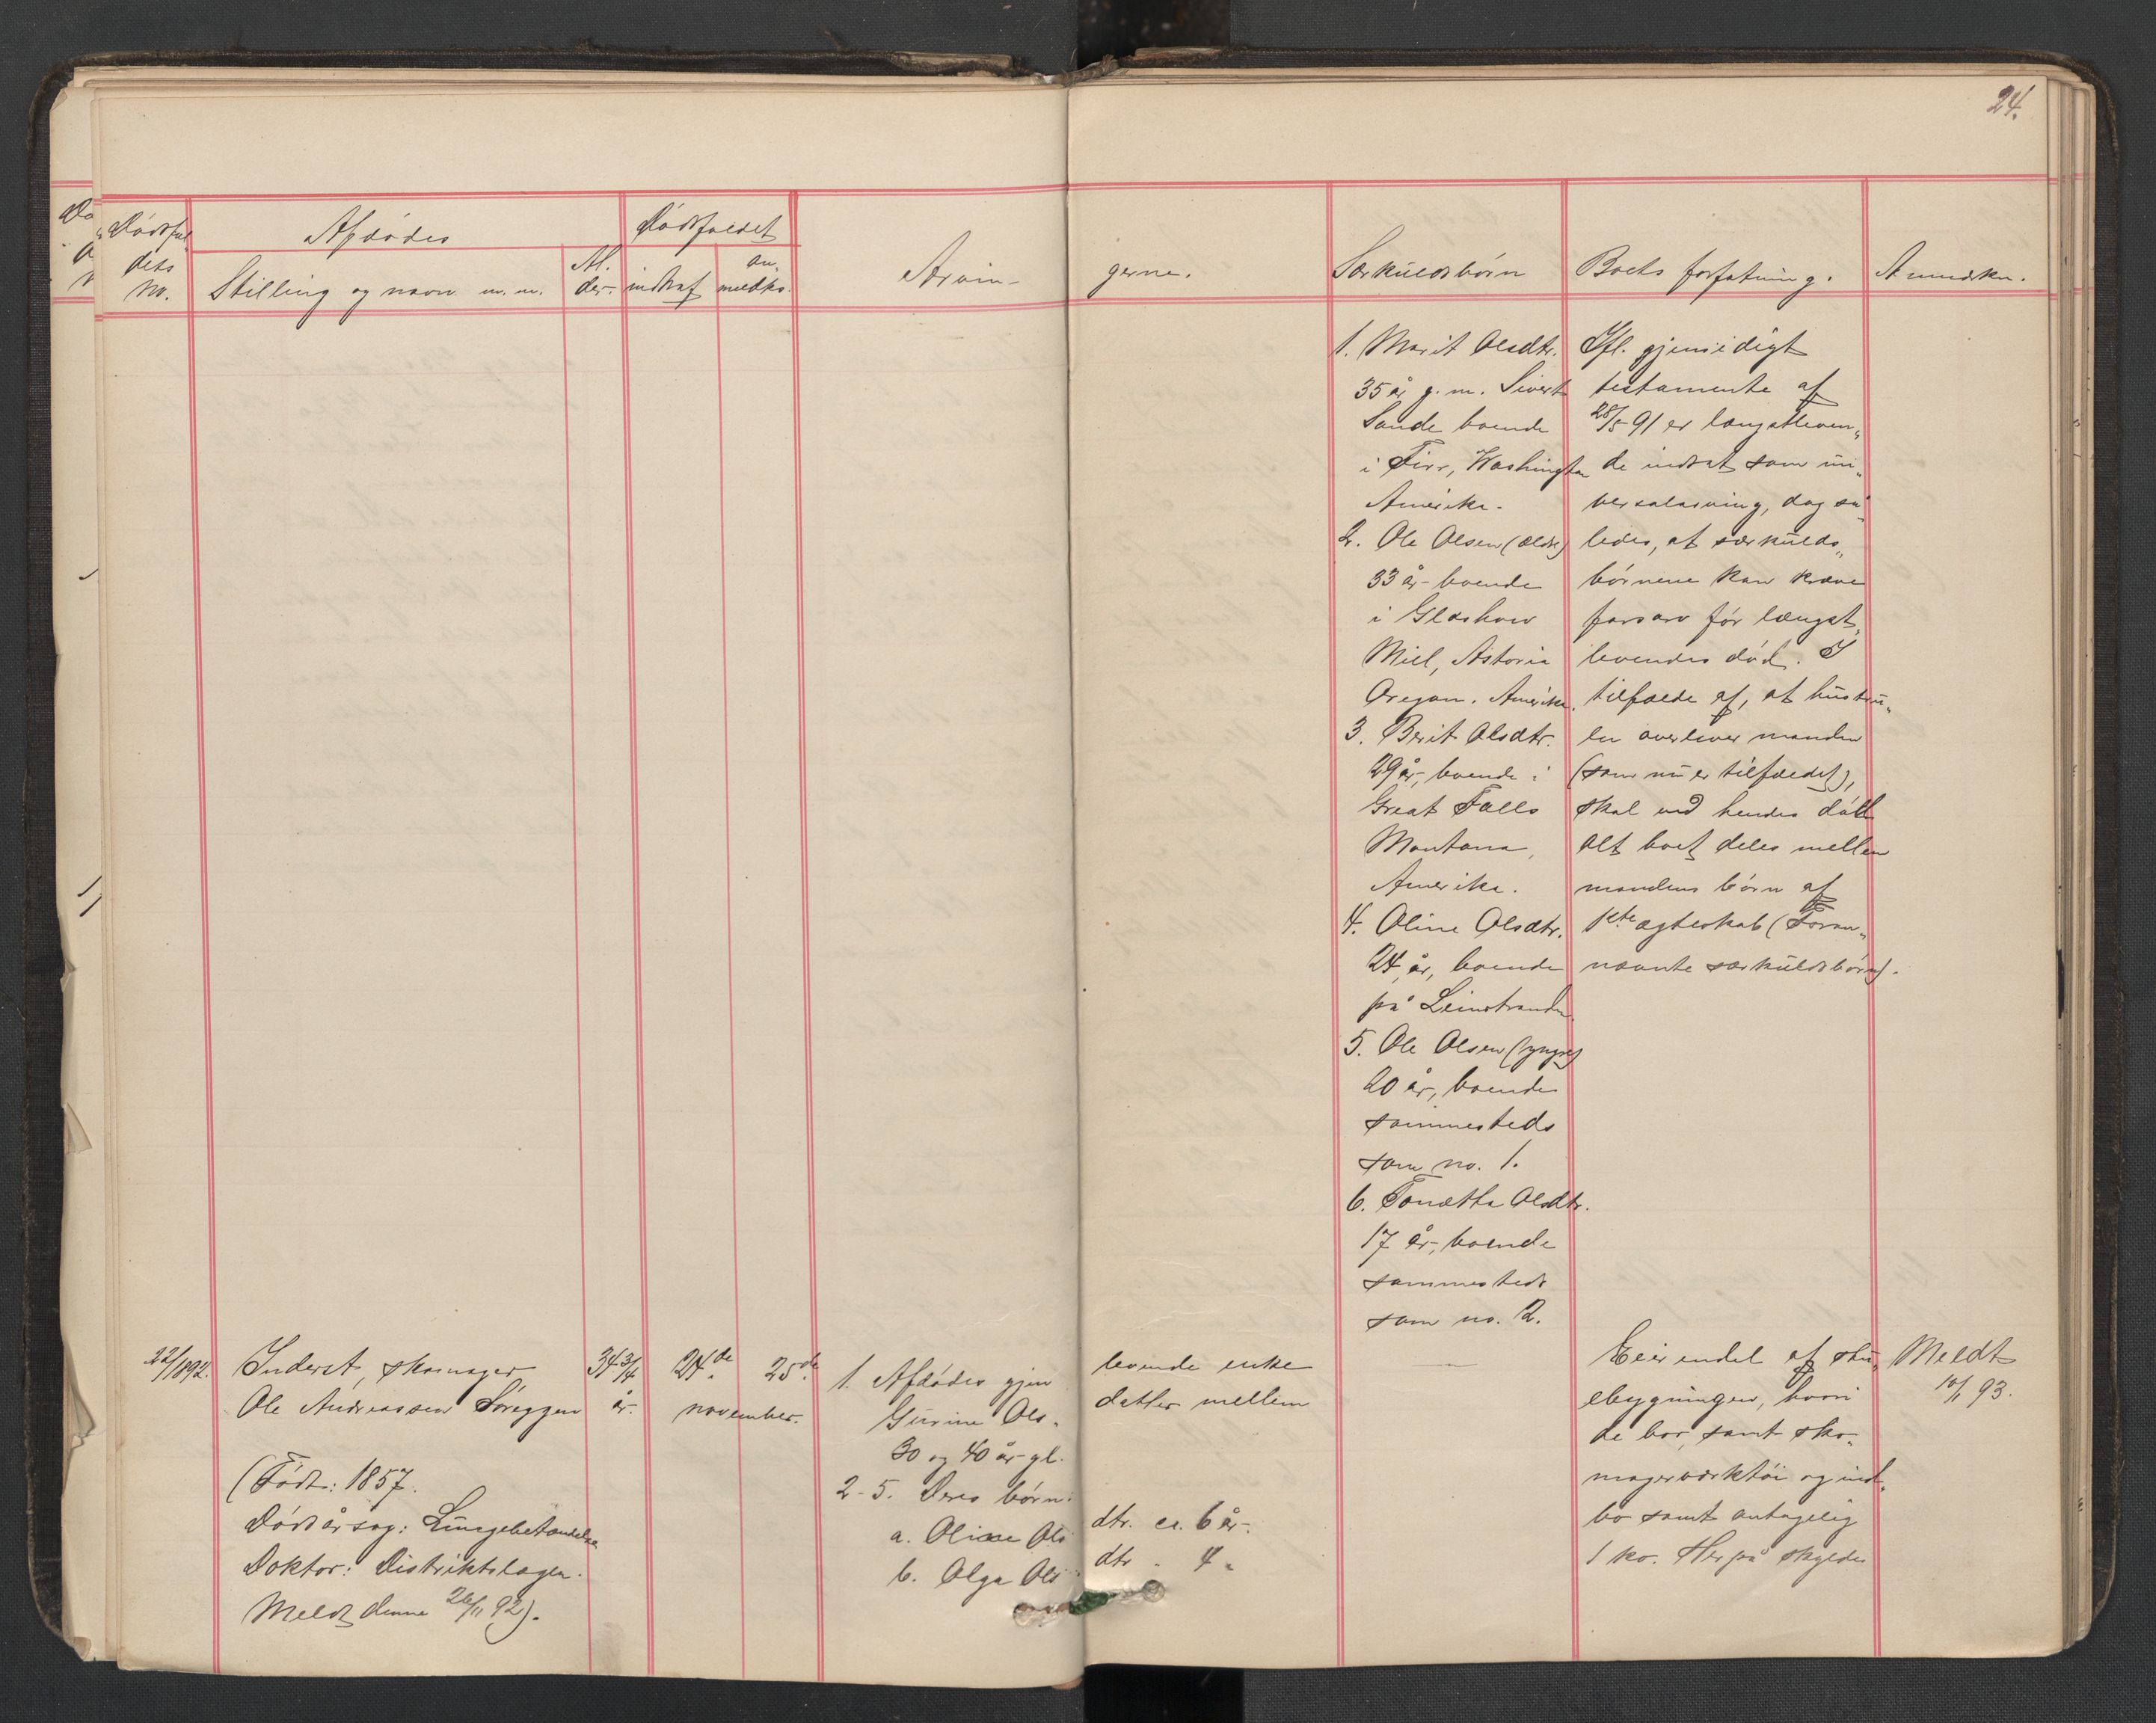 24.
Dödsfal-
dets
No.
Afdödes
Stilling og navn m. m.
Al-
der.
Dödsfaldet
indtraf
an-
meldtes.
Arvin-
gerne.
Særkuldsbörn
Boets forfatning.
Anmerkn.
1. Marit Olsdtr.
35 år g. m. Sivert
Sande boende
i Firr, Washington
Amerika.
2. Ole Olsen (ældre)
33 år boende
i Glashow
Mill, Astoria
Oregon. Amerika.
3. Berit Olsdtr.
29 år, boende i
Great Falls
Montana,
Amerika.
4. Oline Olsdtr.
24 år, boende
på Leinstranden
5. Ole Olsen (yngre)
20 år, boende
sammesteds
som no. 1.
6. Tonetta Olsdtr.
17 år, boende
sammesteds
som no. 2.
Ifl. gjensidigt
testamente af
28/5 91 er længstleven-
de indsat som uni-
versalarving, dog så-
ledes, at særkulds-
börnene kan kræve
farsarv för længst-
levendes död. I
tilfælde af, at hustru-
en overlever manden
(som nu er tilfældet),
skal ved hendes död
alt boet deles mellem
mandens börn af
1ste ægteskab (Foran-
nævnte særkuldsbörn).
22/1892.
Inderst, skomager
Ole Andreassen Söreggen
(Født: 1857.
Dödsårsag: Lungebetændelse
Doktor: Distriktslægen.
Meldt denne 26/11 92).
34 3/4
år.
24de
25de
november.
1. Afdödes gjen-
levende enke
Gurine Ols-
datter mellem
30 og 40 år gl.
2-5. Deres börn:
a. Oline Ols
dtr. ca. 6 år.
b. Olga Ols
dtr. " 4 "
Eier endel af stu-
ebygningen, hvori
de bor, samt sko-
magerværktöi og ind-
bo samt antagelig
1 ko. Herpå skyldes
Meldt
10/1 93.